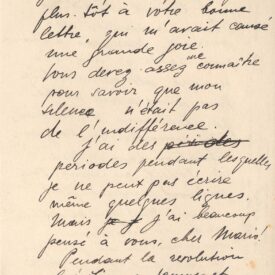 plus tôt à votre bonne
lettre, qui m'avait causé
une grande joie.
Vous devez assez me connaître
pour savoir que mon
silence n'était pas
de l'indifférence.
J'ai des périodes
périodes pendant lesquelles
je ne peut pas écrire
même quelques lignes.
Mais j'ai beaucoup
pensé à vous, cher Mario!
Pendant la revolution